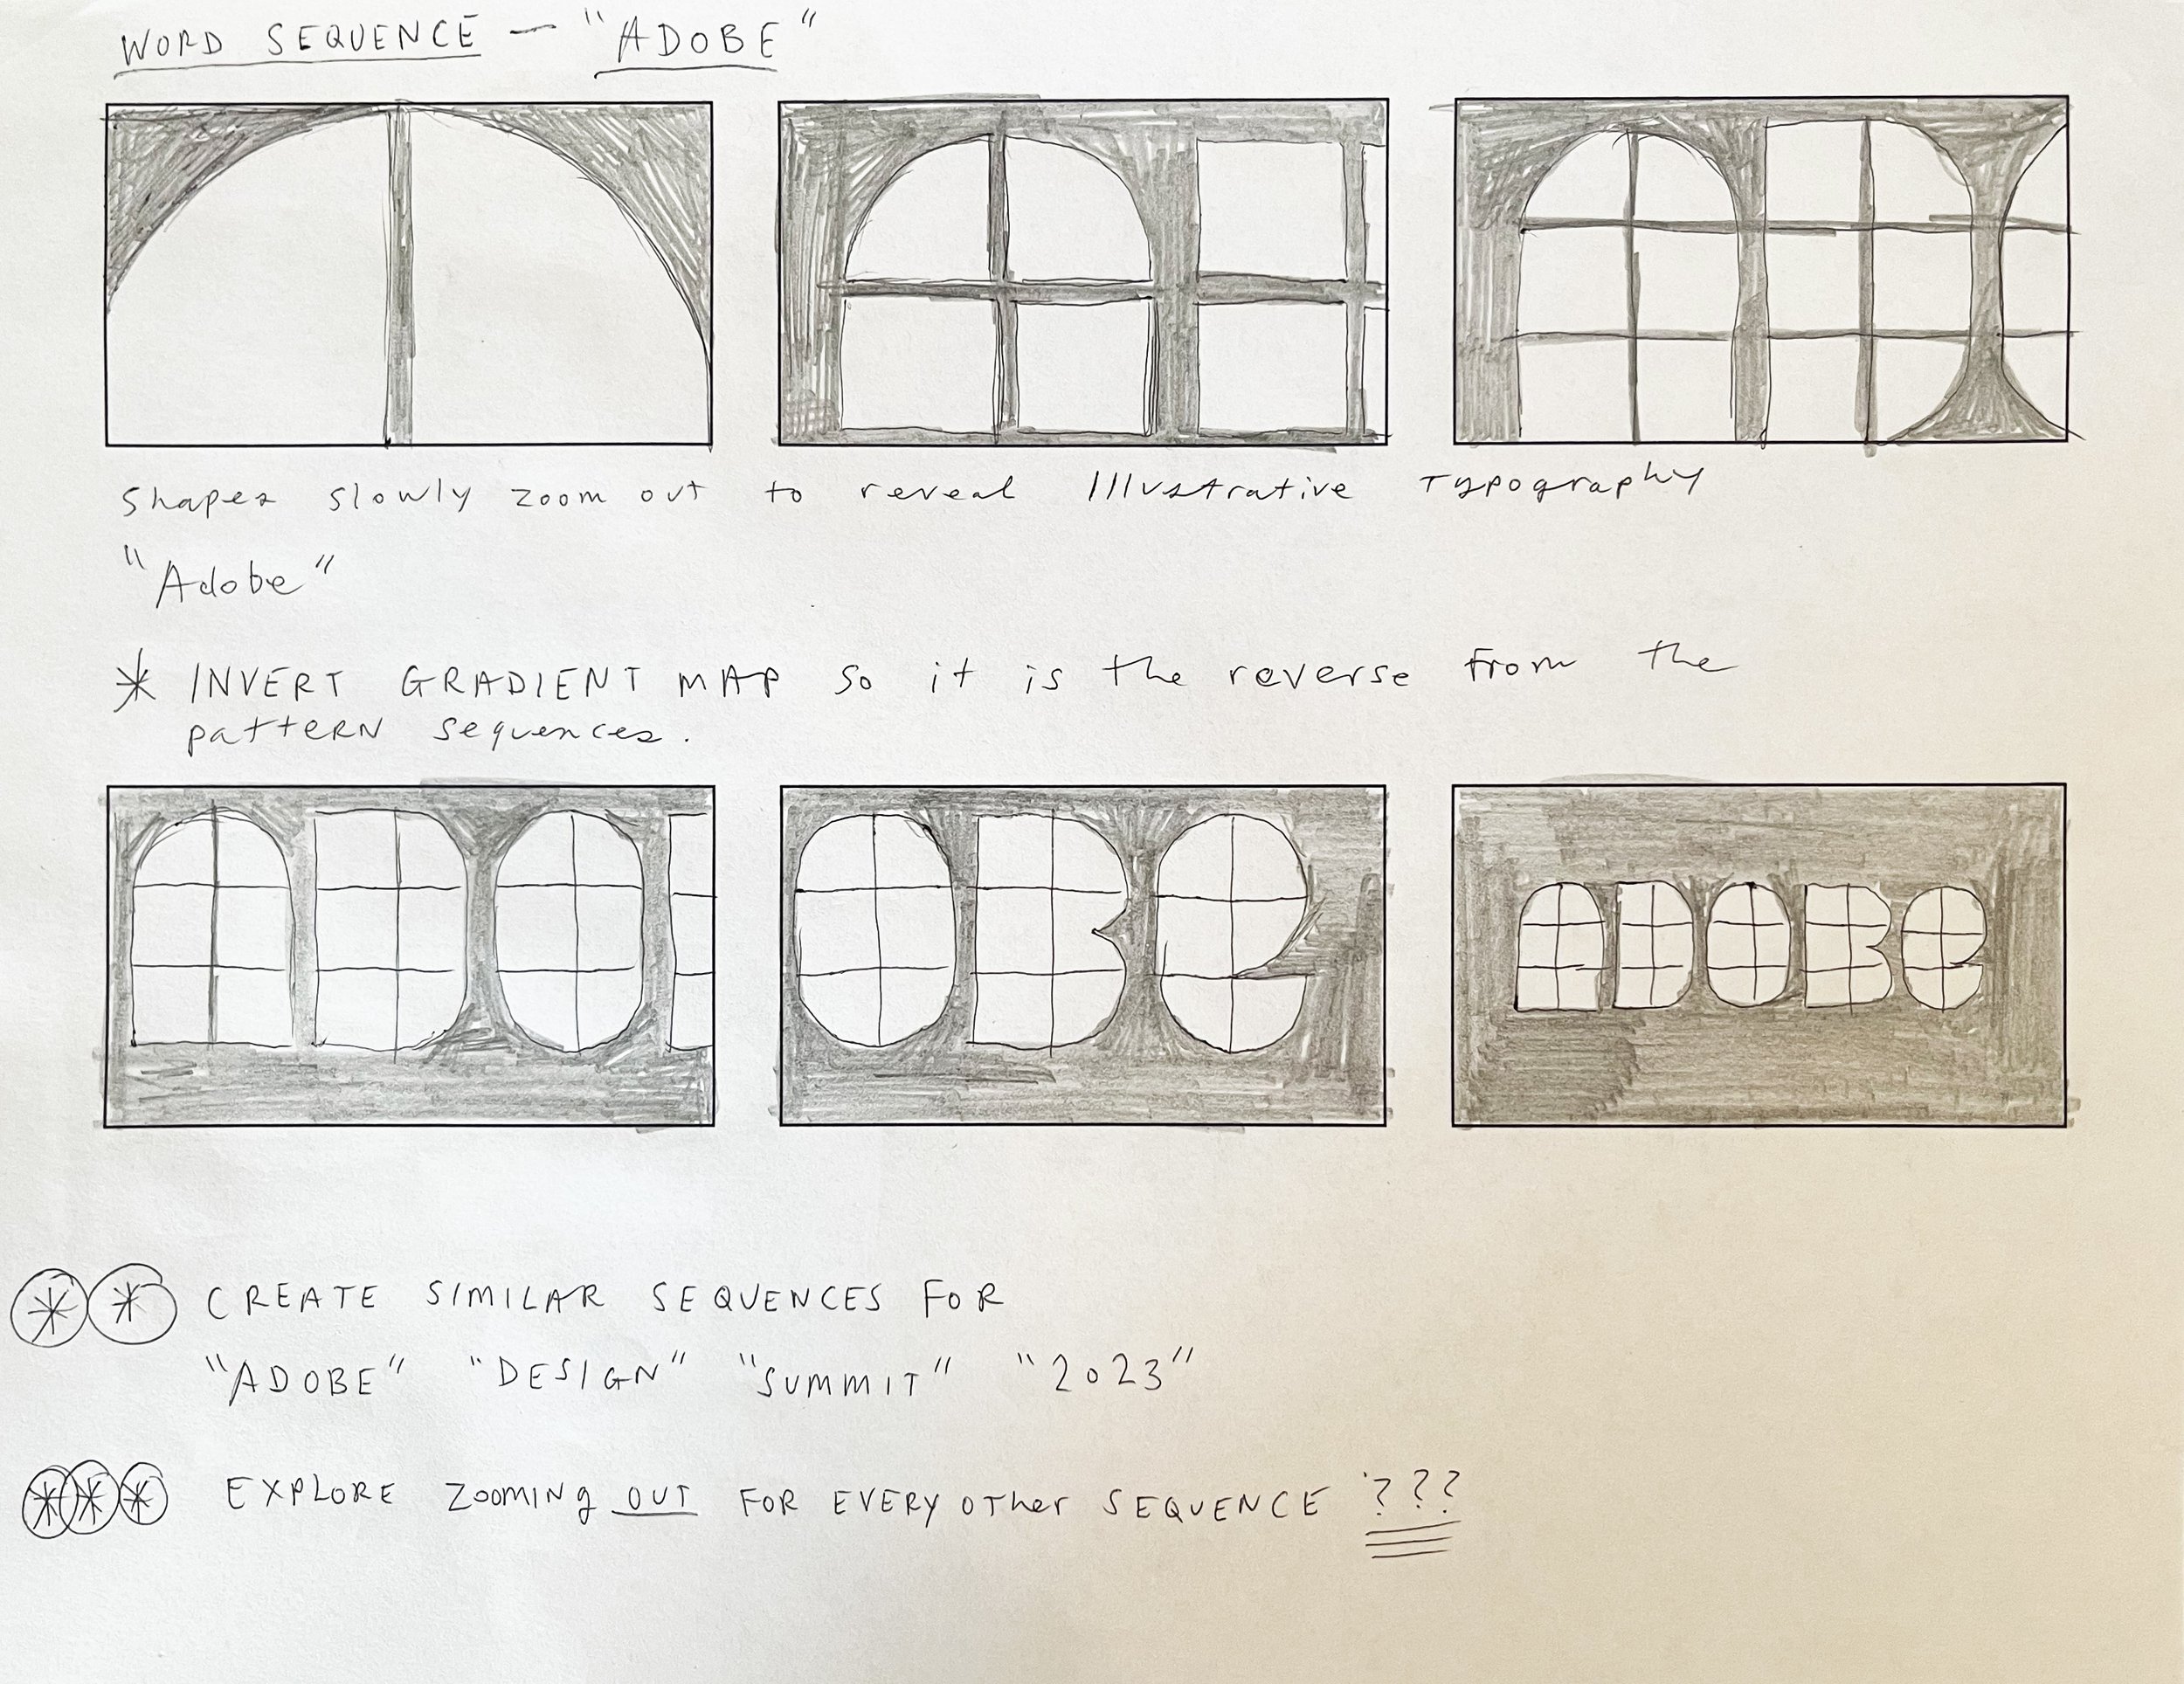 WORD SEQUENCE — "ADOBE"
shapes slowly zoom out to reveal Illustrative Typography
"Adobe"
* INVERT GRADIENT MAP so it is the reverse from the
pattern sequences.
ADO
OBE
ADOBE
** CREATE SIMILAR SEQUENCES FOR
"ADOBE" "DESIGN" "SUMMIT" "2023"
*** EXPLORE ZOOMING OUT FOR EVERY OTHER SEQUENCE ???